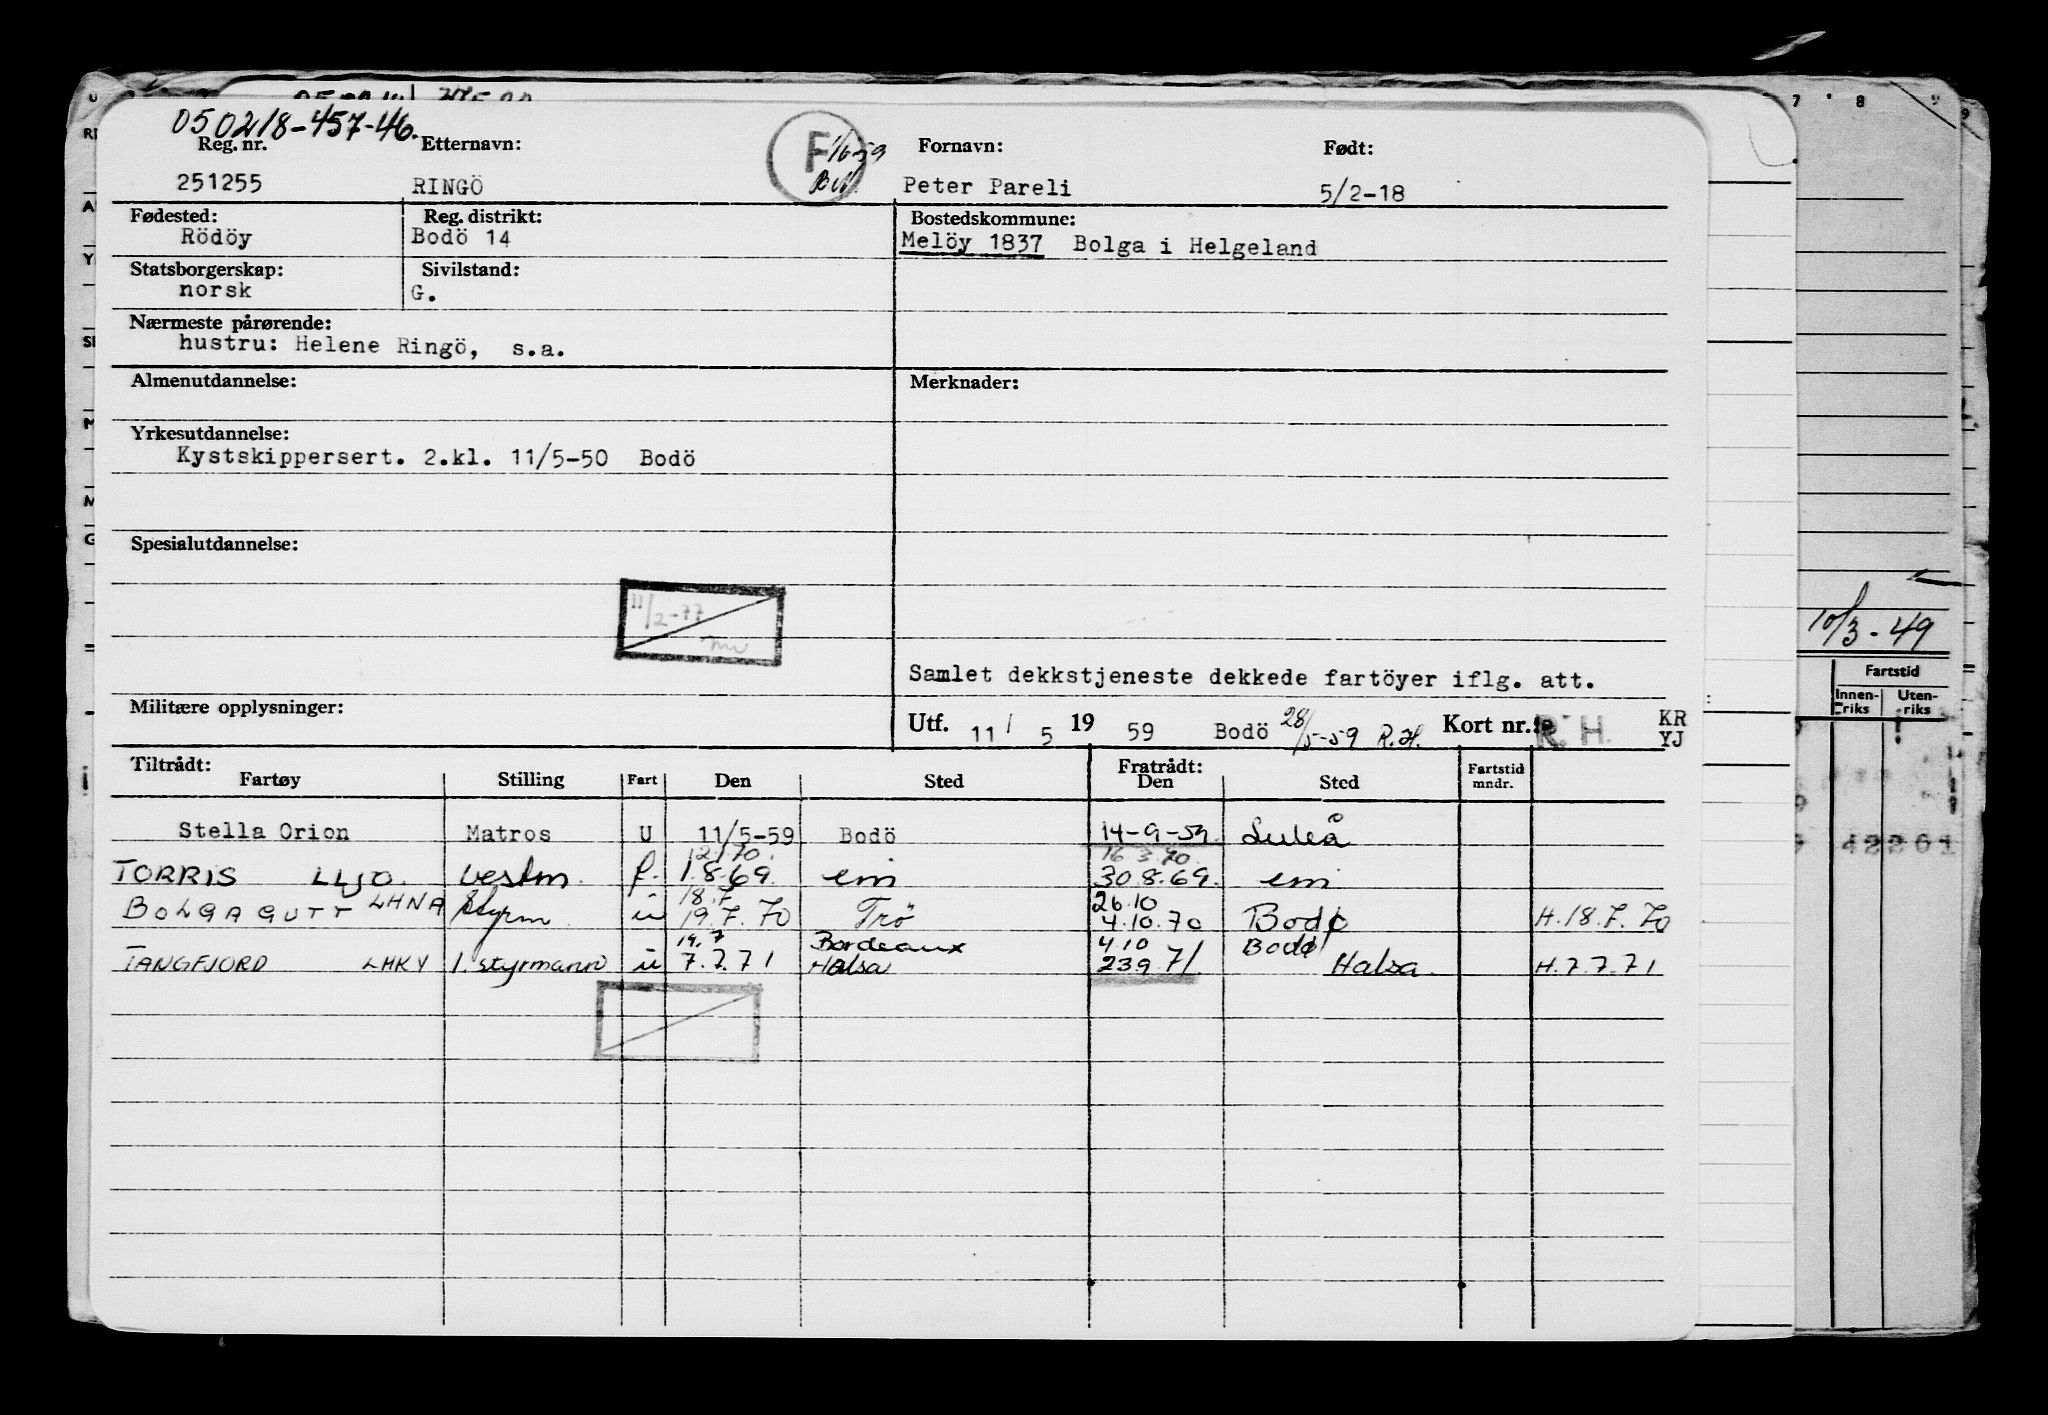 050218-457-46.
Reg. nr. Etternavn: Fornavn: Født:
F 1/6-59
251255 RINGÖ Peter Pareli 5/2-18
Fødested: Reg. distrikt: Bostedskommune:
Rödöy Bodö 14 Melöy 1837 Bolga i Helgeland
Statsborgerskap: Sivilstand:
norsk G.
Nærmeste pårørende:
hustru: Helene Ringö, s.a.
Almenutdannelse: Merknader:
Yrkesutdannelse:
Kystskippersert. 2.kl. 11/5-50 Bodö
Spesialutdannelse:
11/2-77
10/3-49
Samlet dekkstjeneste dekkede fartöyer iflg. att.
Fartstid
Innenriks Utenriks
Militære opplysninger:
Utf. 11/5 19 59 Bodö 28/5-59 R.H. Kort nr.: R.H. KR
YJ
Tiltrådt: Fratrådt:
Fartøy Stilling Fart Den Sted Den Sted Fartstid mndr.
Stella Orion Matros U 11/5-59 Bodö 14-9-59. Luleå
12.1.70. 16.3.70.
TORRIS LLJO. vestm. f. 1.8.69. em 30.8.69. em
18.7 26.10
BOLGAGUTT LHNA Styrm u 19.7.70 Trö 4.10.70 Bodø H.18.7.70
19.7 Bordeaux 4.10 Bodø
TANGFJORD LHKY 1. styrmann u 7.7.71 Halsa 23.9.71 Halsa. H.7.7.71